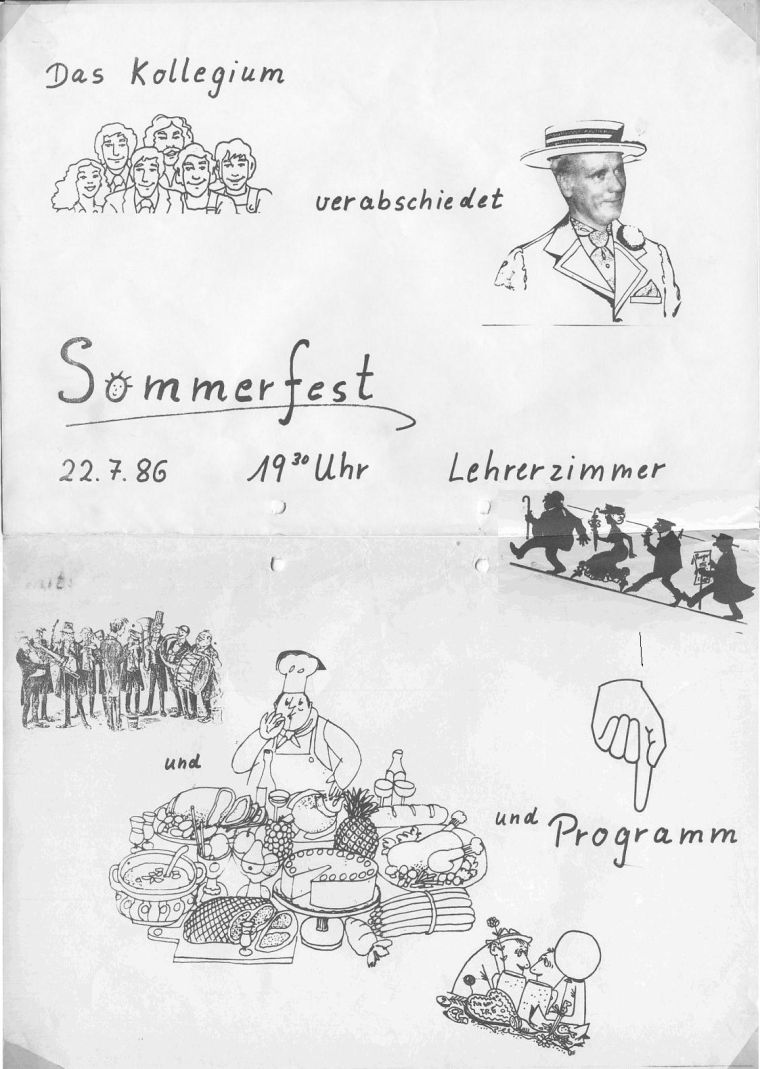 Das Kollegium
verabschiedet
Sommerfest
22.7.86 19³⁰ Uhr Lehrerzimmer
und
und Programm